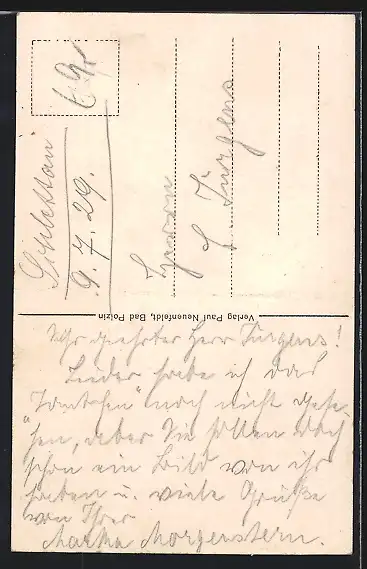 Schlettau
9.7.29.
Herrn
H. Jürgens
Verlag Paul Neuenfeldt, Bad Polzin
Sehr geehrter Herr Jürgens!
Leider habe ich das
"Tantchen" noch nicht gese-
hen, aber Sie sollen doch
schon ein Bild von ihr
haben u. viele Grüße
von Ihrer
Martha Morgenstern.